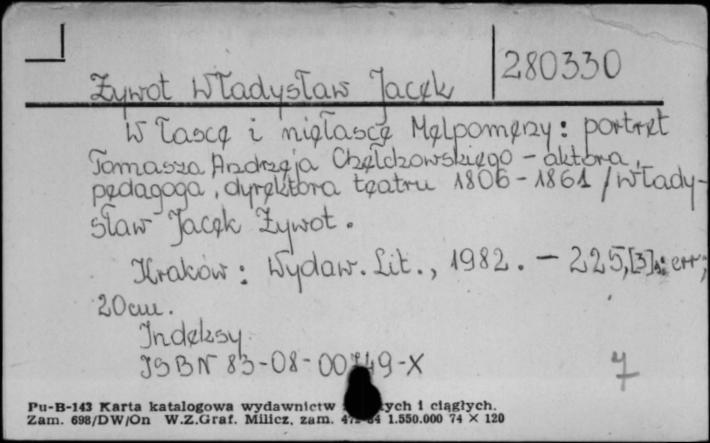 280330
Żywot Władysław Jacek
W łasce i niełasce Melpomeny: portret
Tomasza Andrzeja Chełchowskiego - aktora,
pedagoga, dyrektora teatru 1806-1861 / Włady-
sław Jacek Żywot.
Kraków: Wydaw. Lit., 1982. - 225,[3]s: err;
20cm.
Indeksy
ISBN 83-08-00749-X
7
Pu-B-143 Karta katalogowa wydawnictw i ciągłych.
Zam. 698/DW/On W.Z.Graf. Milicz, zam. 1.550.000 74 × 120